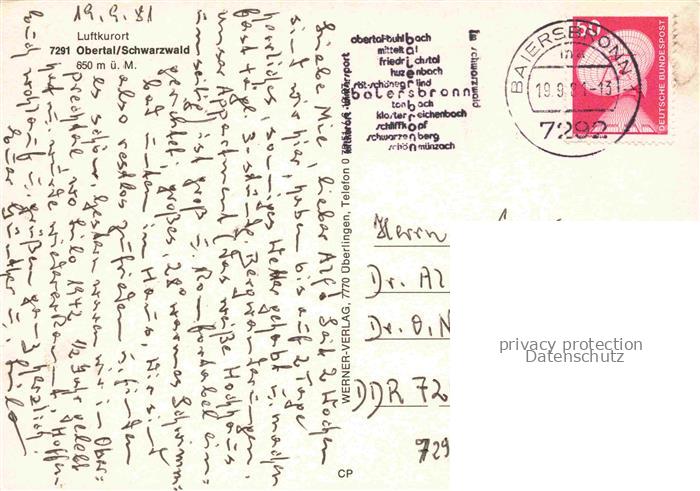 19.9.81
Luftkurort
7291 Obertal/Schwarzwald
650 m ü. M.
Liebe Mie, lieber Alf! Seit 2 Wochen
sind wir hier, haben bis auf 2 Tage
herrliches, sonniges Wetter gehabt u. machen
fast tägl. 3-stünd. Bergwanderungen.
Unser Appartment (das weiße Hochhaus
umseitig) ist groß u. komfortabel ein=
gerichtet, großes, 28° warmes Schwimm=
bad unten im Haus, wir sind
also restlos zufrieden u. finden
es schön, gestern waren wir in Ober=
prechtal, wo Lilo 1942 1/2 Jahr gelebt
hat u. wurde wiedererkannt. Hoffen
Euch wohlauf u. grüßen ganz herzlich
Euer Günther u. Lilo
WERNER-VERLAG, 7770 Überlingen, Telefon 0
CP
obertal-buhlbach
mitteltal
friedrichstal
huzenbach
röt-schönegründ
baiersbronn
tonbach
klosterreichenbach
schliffkopf
schwarzenberg
schönmünzach
im schwarzwald
BAIERSBRONN 1
19.9.81-13
7292
50
DEUTSCHE BUNDESPOST
Herrn
Dr. Al
Dr. O. N
DDR 72
729
privacy protection
Datenschutz